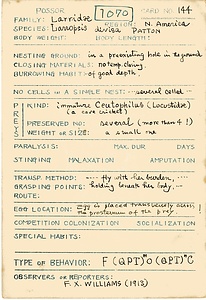 POSSOR 1070 CARD NO. 144
FAMILY: Larridae REGION: N. America
SPECIES: Lianopsis divisa PATTON
BODY WEIGHT: BODY LENGTH:
NESTING GROUND: in a preexisting hole in the ground
CLOSING MATERIALS: no temp. closing.
BURROWING HABIT: of good depth.
NO. CELLS IN A SINGLE NEST: several cells
PREY
KIND: immature Ceutophilus (Locustidae)
(a cave cricket)
PRESERVED NO: several (more than 4!)
WEIGHT OR SIZE: a small one
PARALYSIS: MAX. DUR. DAYS
STINGING MALAXATION AMPUTATION
TRANSP. METHOD: fly with her burden,
GRASPING POINTS: holding beneath her body
ROUTE:
EGG LOCATION: Egg is placed transversely across the prosternum of the prey.
COMPETITION COLONIZATION SOCIALIZATION
SPECIAL HABITS:
TYPE OF BEHAVIOR:
OBSERVERS OR REPORTERS:
F. X. WILLIAMS (1913)